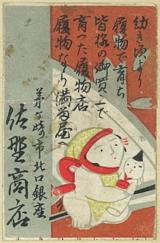 幼き頃より
履物で育ち
皆様の御買上で
育った履物店
履物なら満留屋へ
茅ヶ崎市北口銀座
佐野商店